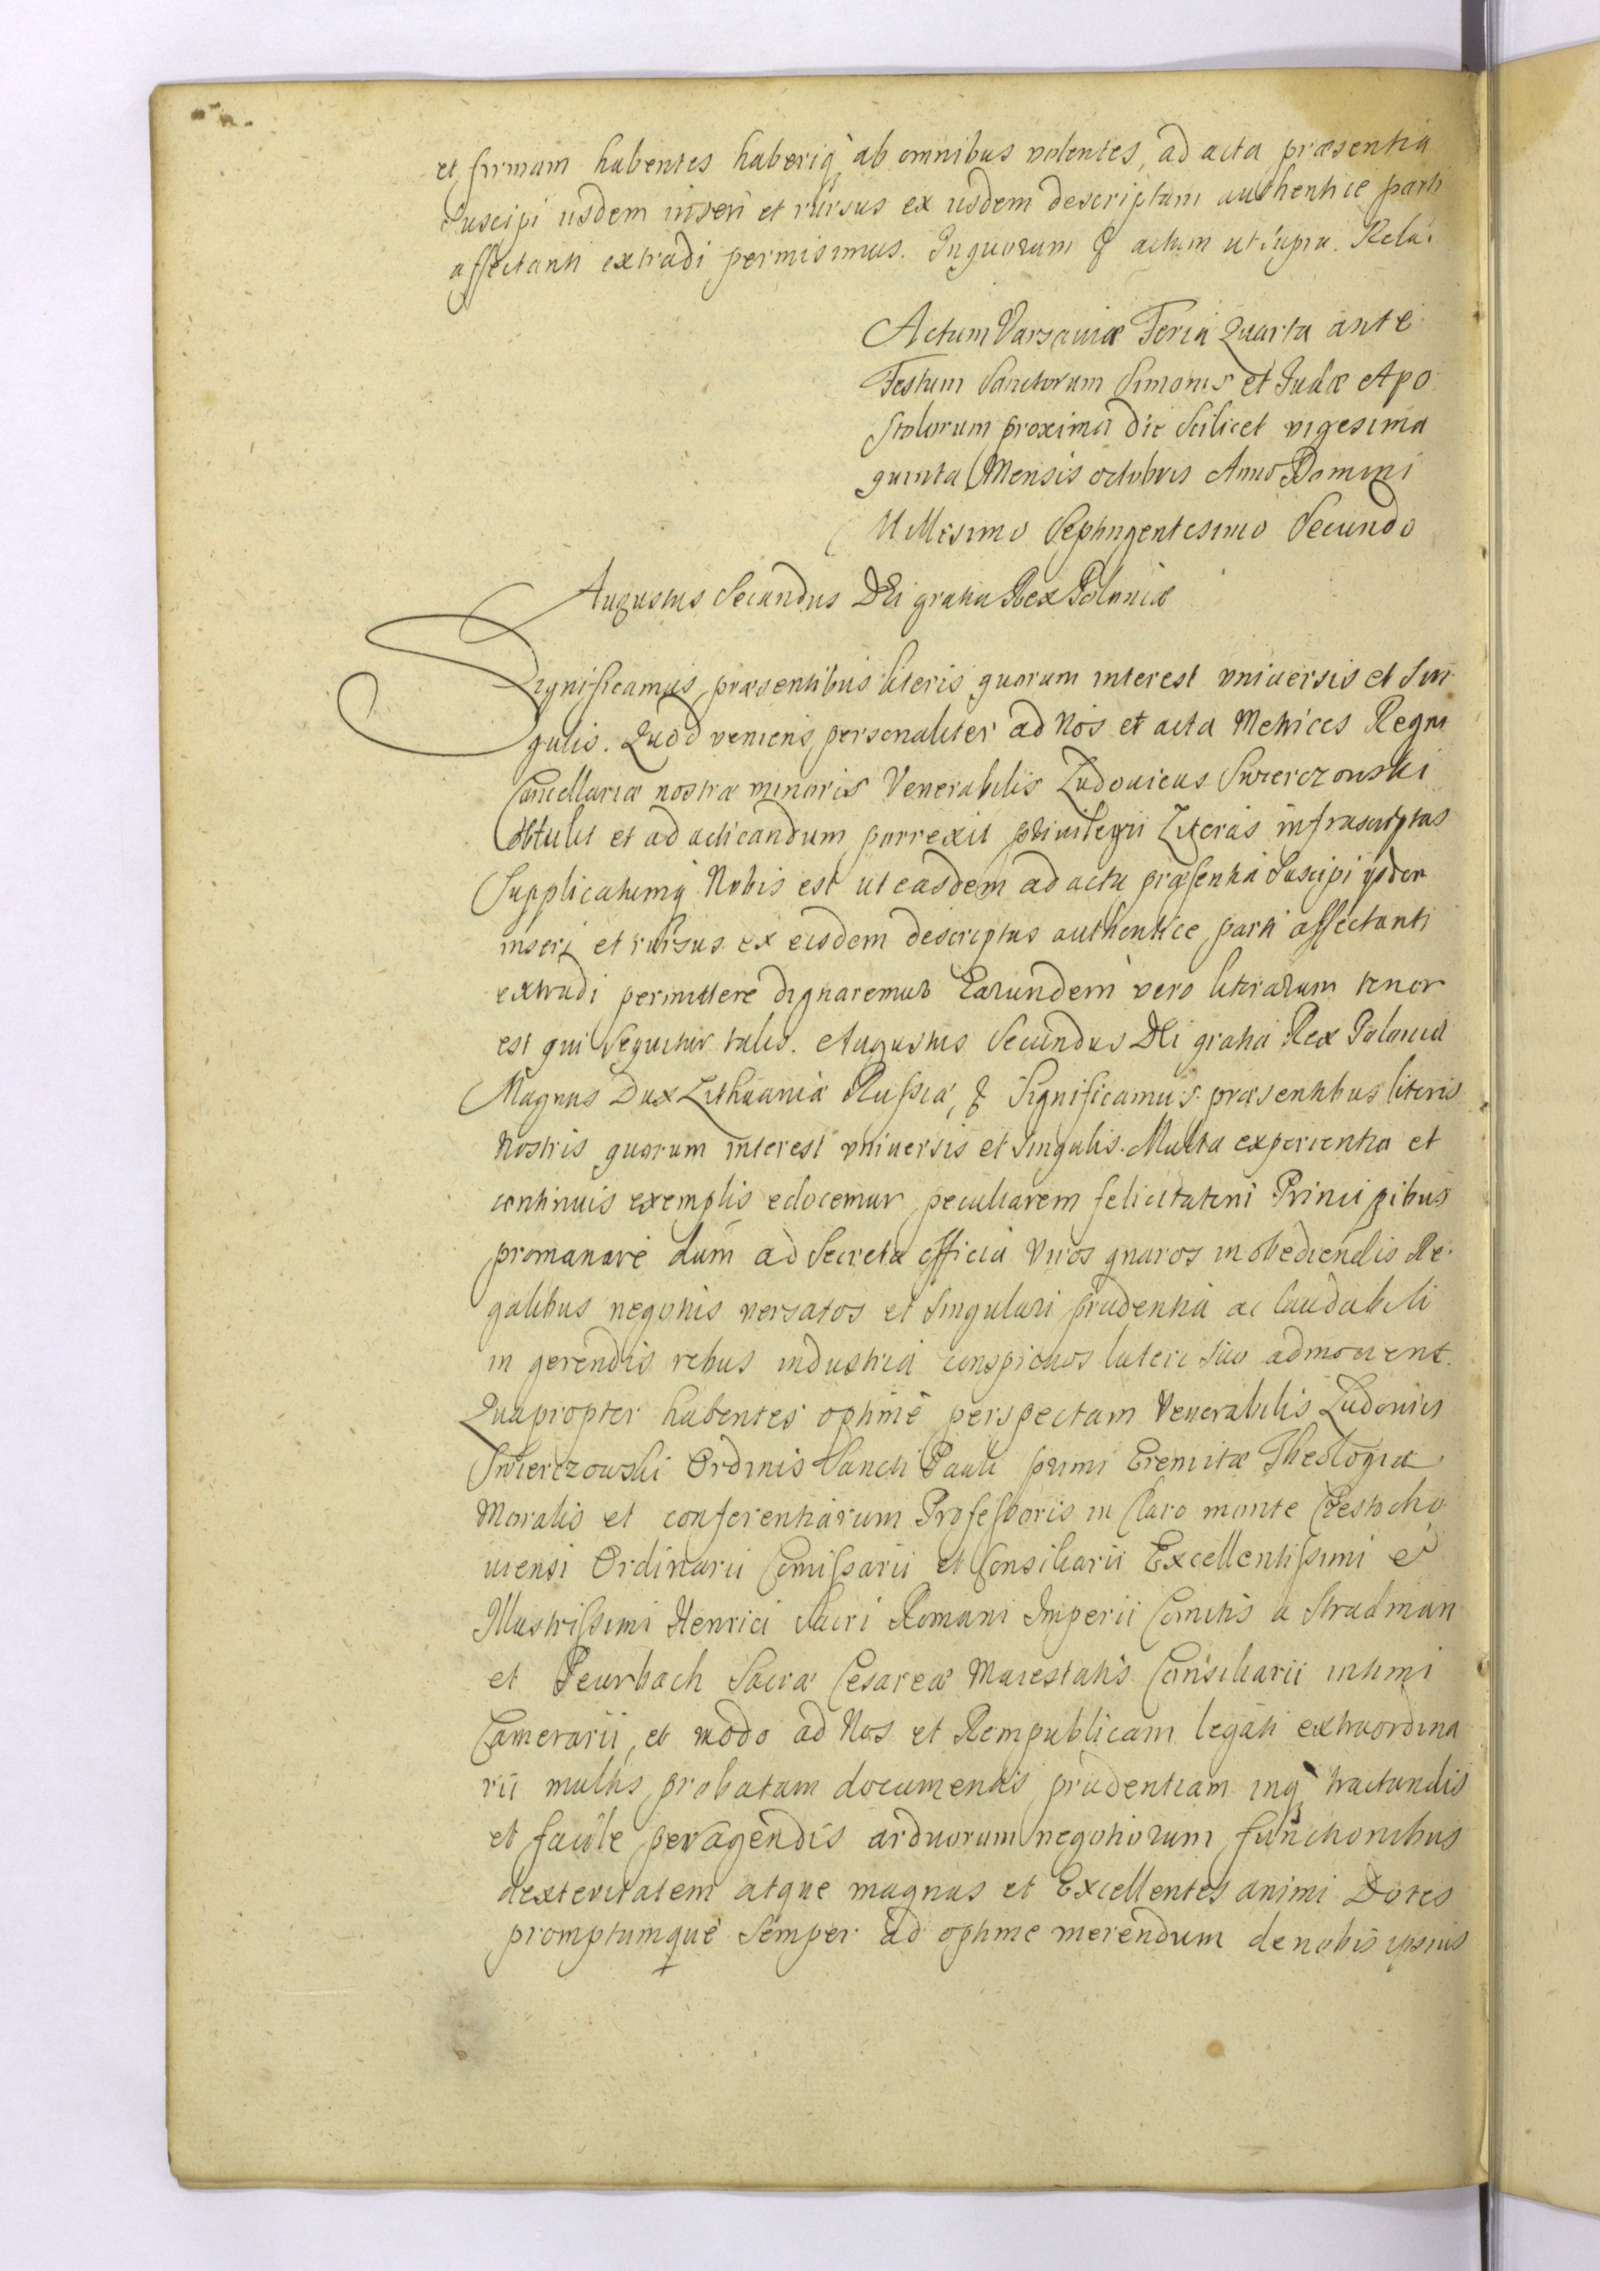 et firmam habentes haberiq ab omnibus volentes, ad acta præsentia
suscipi iisdem inseri et rursus ex iisdem descriptam authentice parti
affectanti extradi permisimus. In quorum & actum ut supra. Rela:
Actum Varsaviæ Feria Quarta ante
Festum Sanctorum Simonis et Judæ Apo
stolorum proxima die scilicet vigesima
quinta Mensis octobris Anno Domini
Millesimo Septingentesimo Secundo
Augustus Secundus DEi gratia Rex Poloniæ
Significamus præsentibus literis quorum interest vniuersis et Sin
gulis. Quod veniens personaliter ad Nos et acta Metrices Regni
Cancellariæ nostræ minoris Venerabilis Ludouicus Swierczowski
obtulit et ad acticandum porrexit priuilegii Literas infrascriptas
Supplicatumq Nobis est ut easdem ad acta præsentia Suscipi ysdem
inseri et rursus ex eisdem descriptas authentice parti affectanti
extradi permittere dignaremur Earundem vero literarum tenor
est qui sequitur talis. Augustus Secundus DEi gratia Rex Poloniæ
Magnus Dux Lithuaniæ Russiæ, & Significamus præsentibus literis
Nostris quorum interest vniuersis et singulis. Multa experientia et
continuis exemplis edocemur peculiarem felicitatem Principibus
promanare dum ad Secreta officia Viros gnaros in obediendis Re
galibus negotiis versatos et singulari prudentia ac laudabili
in gerendis rebus industria conspicuos lateri suo admouent.
Quapropter habentes optime perspectam Venerabilis Ludouici
Swierczowski Ordinis Sancti Pauli primi Eremitæ Theologiæ
Moralis et conferentiarum Professoris in Claro monte Czestocho
uiensi Ordinarii Comissarii et Consiliarii Excellentissimi et
Illustrissimi Henrici Sacri Romani Imperii Comitis a Stradman
et Peurbach Sacræ Cesareæ Maiestatis Consiliarii intimi
Camerarii, et modo ad Nos et Rempublicam legati extraordina
rii multis probatam documentis prudentiam inq tractandis
et facile peragendis arduorum negotiorum functionibus
dexteritatem atque magnas et Excellentes animi Dotes
promptumque semper ad optime merendum de nobis ipsius